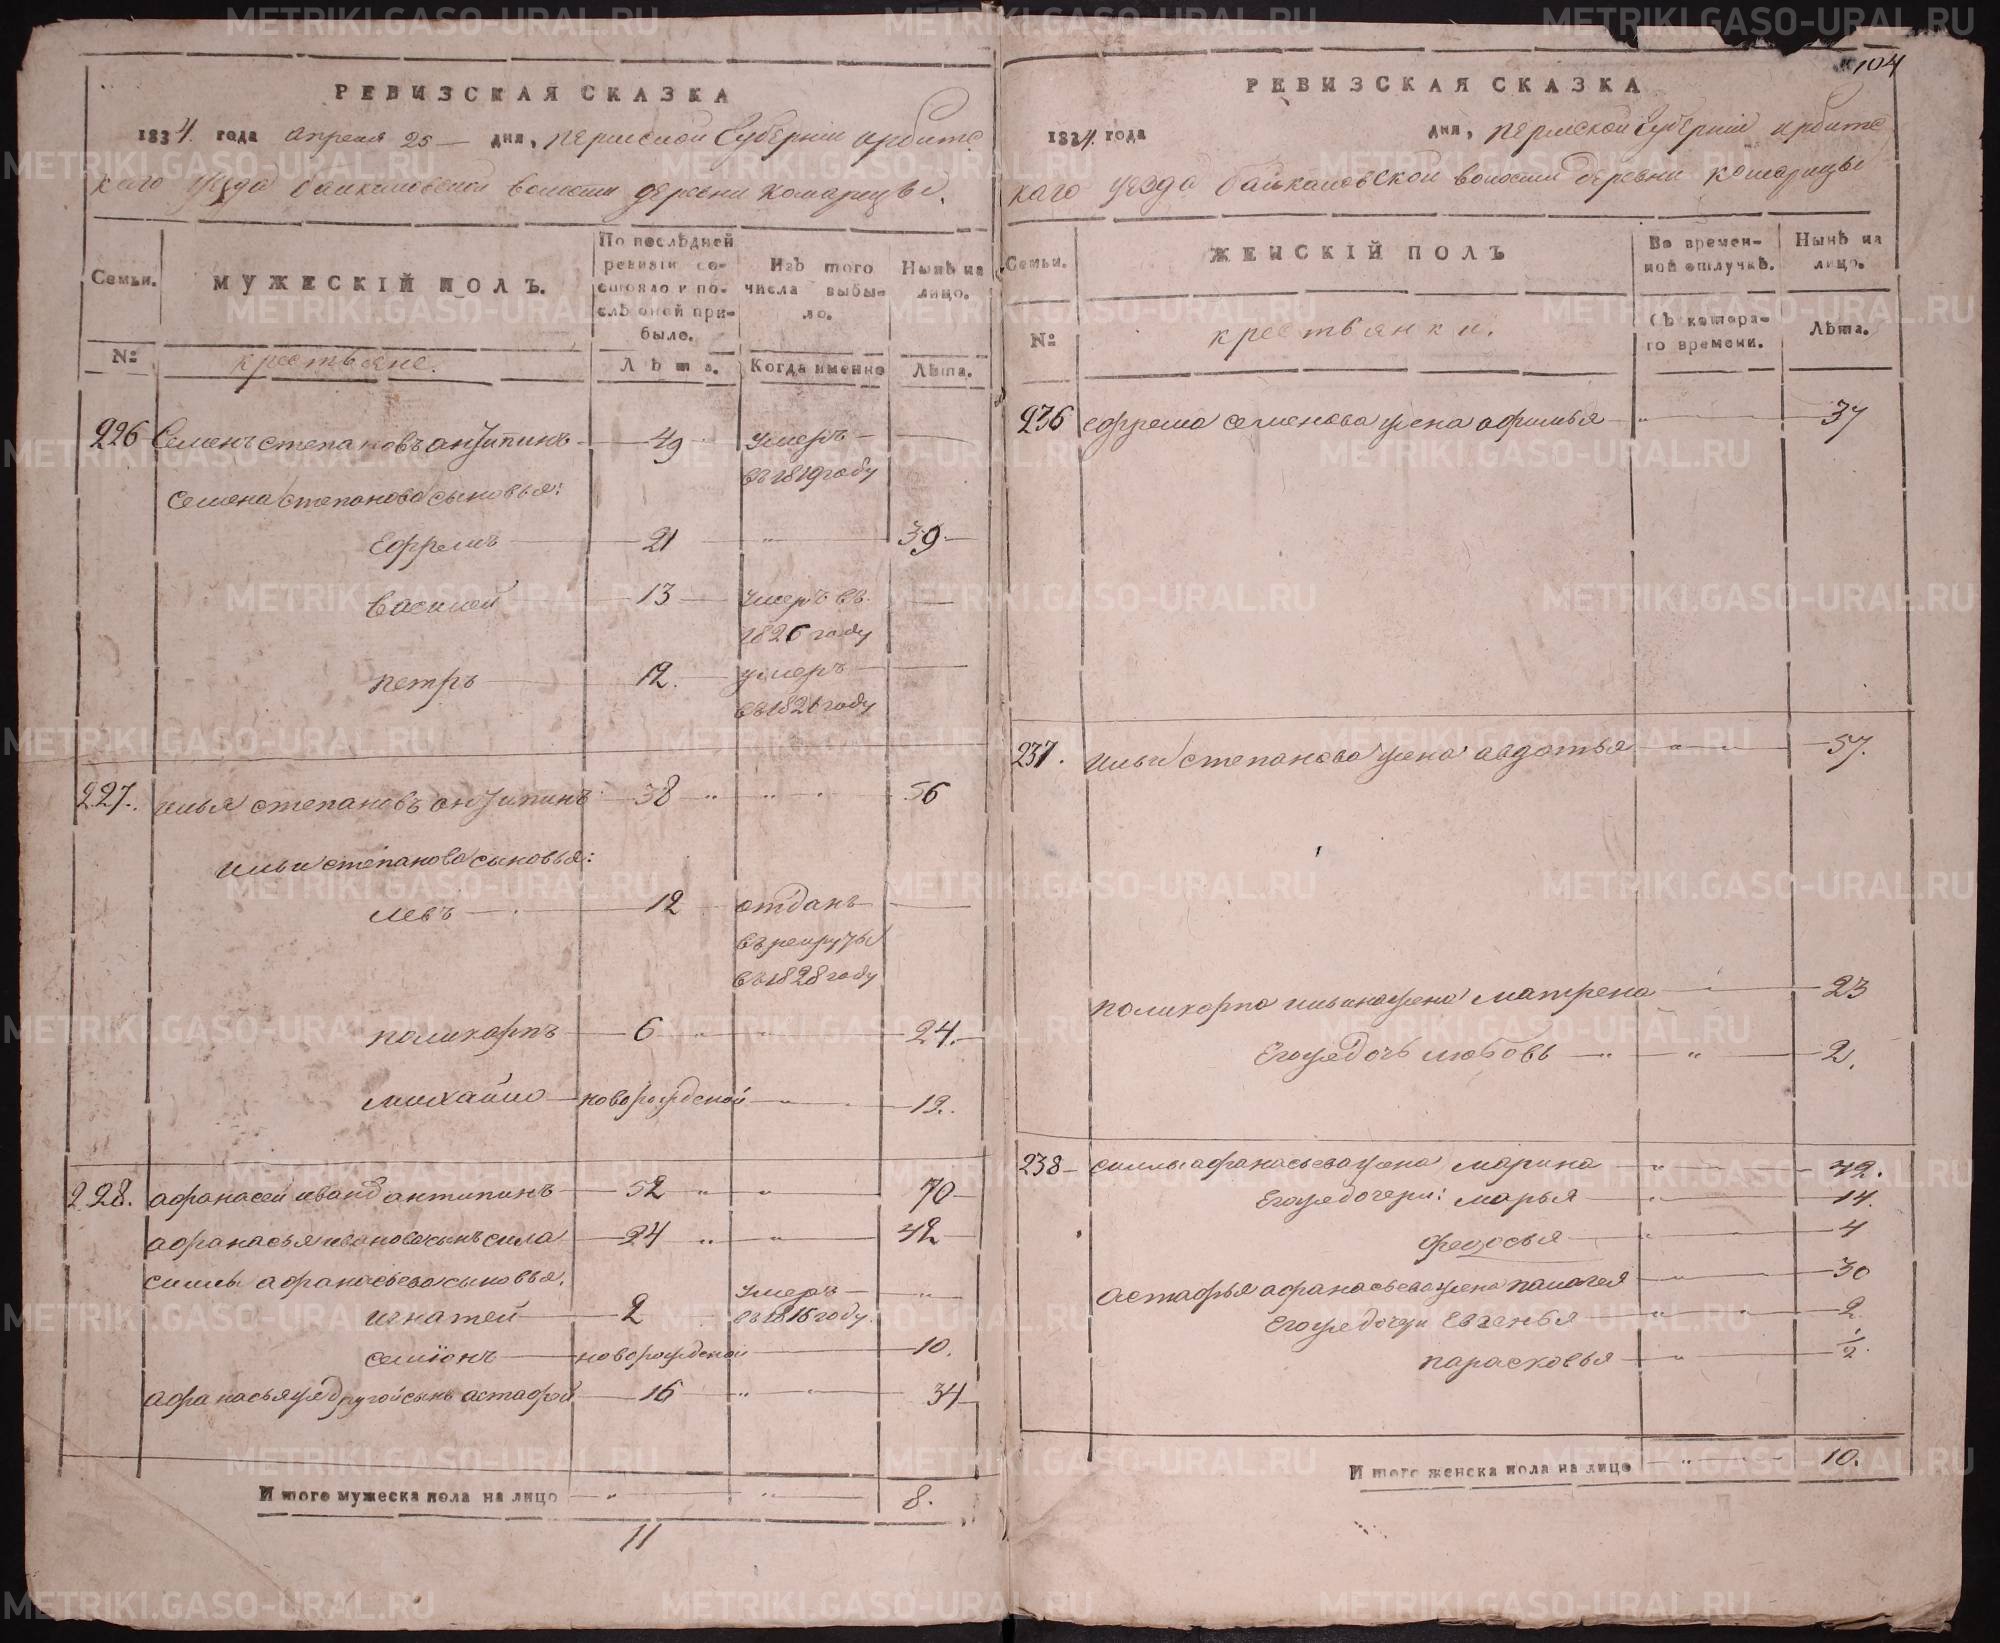 РЕВИЗСКАЯ СКАЗКА
1834. года апреля 25 — дня, пермской Губернiи ирбитс
каго уезда байкаловской волости деревни комарицы.
Семьи.
МУЖЕСКIЙ ПОЛЪ.
По послѣдней ревизiи состояло и послѣ оной прибыло.
Изъ того числа выбыло.
Нынѣ на лицо.
№
крестьяне.
Лѣта.
Когда именно
Лѣта.
226 Семенъ степановъ антипинъ — 49 умеръ —
въ 1819 году
семена степанова сыновья:
Ефремъ — 21 — " — 39 —
василей — 13 — умеръ въ —
1826 году
петръ — 12. — умеръ —
въ 1821 году
227. илья степановъ антипинъ — 38 " " 56
ильи степанова сыновья:
левъ — 12 отданъ —
въ рекруты
въ 1828 году
поликарпъ — 6 — " — 24.
михайло — новорожденой — " — 19.
228. афанасей иванов антипинъ — 52 " " — 70
афанасья иванова сынъ сила — 24 " " — 42
силы афанасьева сыновья.
игнатей — 2 умеръ — "
въ 1816 году.
семiонъ — новорожденой — 10.
афанасья же другой сынъ астафей — 16 — " — 34
Итого мужеска пола на лицо — " — " — 8.
11
104
РЕВИЗСКАЯ СКАЗКА
1834. года дня, пермской Губернiи ирбитс
каго уезда байкаловской волости деревни комарицы
Семьи.
ЖЕНСКIЙ ПОЛЪ
Во временной отлучкѣ.
Нынѣ на лицо.
№
крестьянки.
Съ котораго времени.
Лѣта.
236 ефрема семенова жена афимья — " — 37
237. ильи степанова жена авдотья — " — 57.
поликарпа ильина жена матрена — 23
Егожъ дочь любовь — " — " — 2.
238 — силы афанасьева жена марина — " — 42.
Егожъ дочери: марья — " — 14.
федосья — " — 4
астафья афанасьева жена палагея — " — 30
Егожъ дочери Евгенья — " — 2
парасковья — " — 1/2.
Итого женска пола на лицо — " — 10.
METRIKI.GASO-URAL.RU